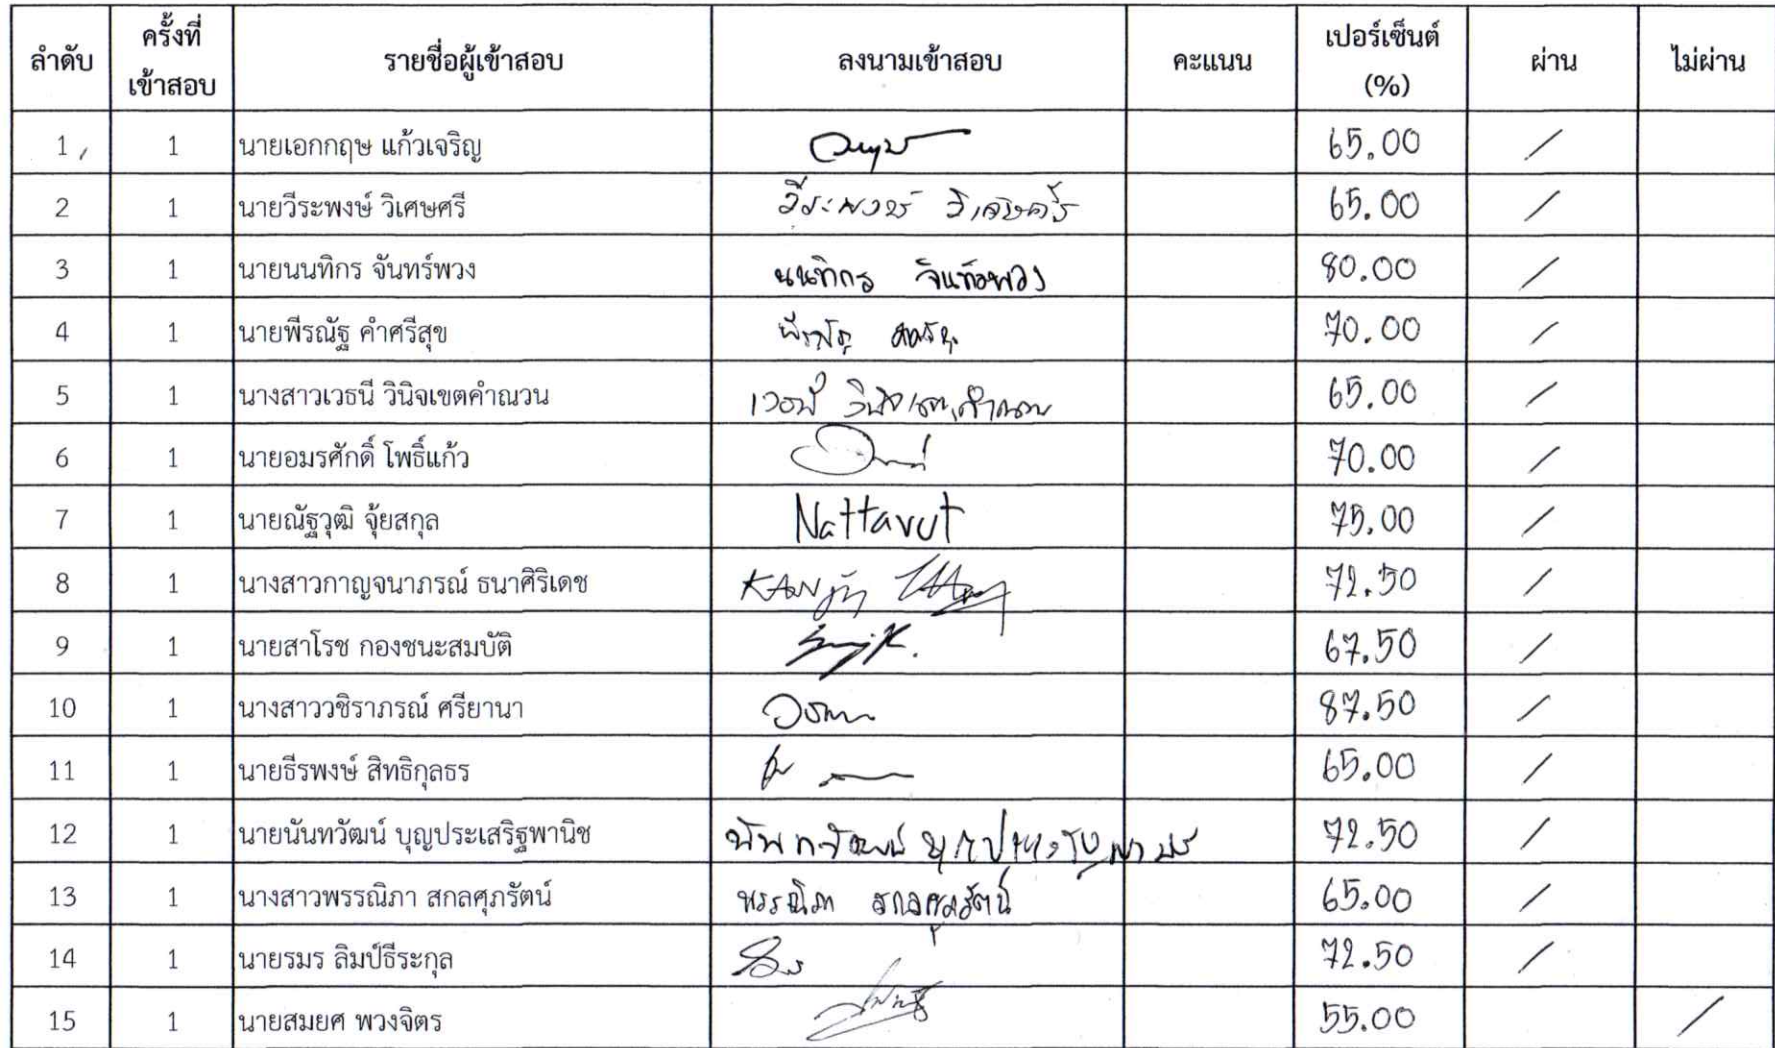 ลำดับ ครั้งที่เข้าสอบ รายชื่อผู้เข้าสอบ ลงนามเข้าสอบ คะแนน เปอร์เซ็นต์ (%) ผ่าน ไม่ผ่าน
1 1 นายเอกกฤษ แก้วเจริญ 65.00 /
2 1 นายวีระพงษ์ วิเศษศรี วีระพงษ์ วิเศษศรี 65.00 /
3 1 นายนนทิกร จันทร์พวง นนทิกร จันทร์พวง 80.00 /
4 1 นายพีรณัฐ คำศรีสุข พีรณัฐ 70.00 /
5 1 นางสาวเวธนี วินิจเขตคำณวน เวธนี วินิจเขตคำณวน 65.00 /
6 1 นายอมรศักดิ์ โพธิ์แก้ว 70.00 /
7 1 นายณัฐวุฒิ จุ้ยสกุล Nattavut 75.00 /
8 1 นางสาวกาญจนาภรณ์ ธนาศิริเดช 72.50 /
9 1 นายสาโรช กองชนะสมบัติ 67.50 /
10 1 นางสาววชิราภรณ์ ศรียานา 87.50 /
11 1 นายธีรพงษ์ สิทธิกุลธร 65.00 /
12 1 นายนันทวัฒน์ บุญประเสริฐพานิช นันทวัฒน์ 72.50 /
13 1 นางสาวพรรณิภา สกลศุภรัตน์ พรรณิภา สกลศุภรัตน์ 65.00 /
14 1 นายรมร ลิมป์ธีระกุล 72.50 /
15 1 นายสมยศ พวงจิตร 55.00 /